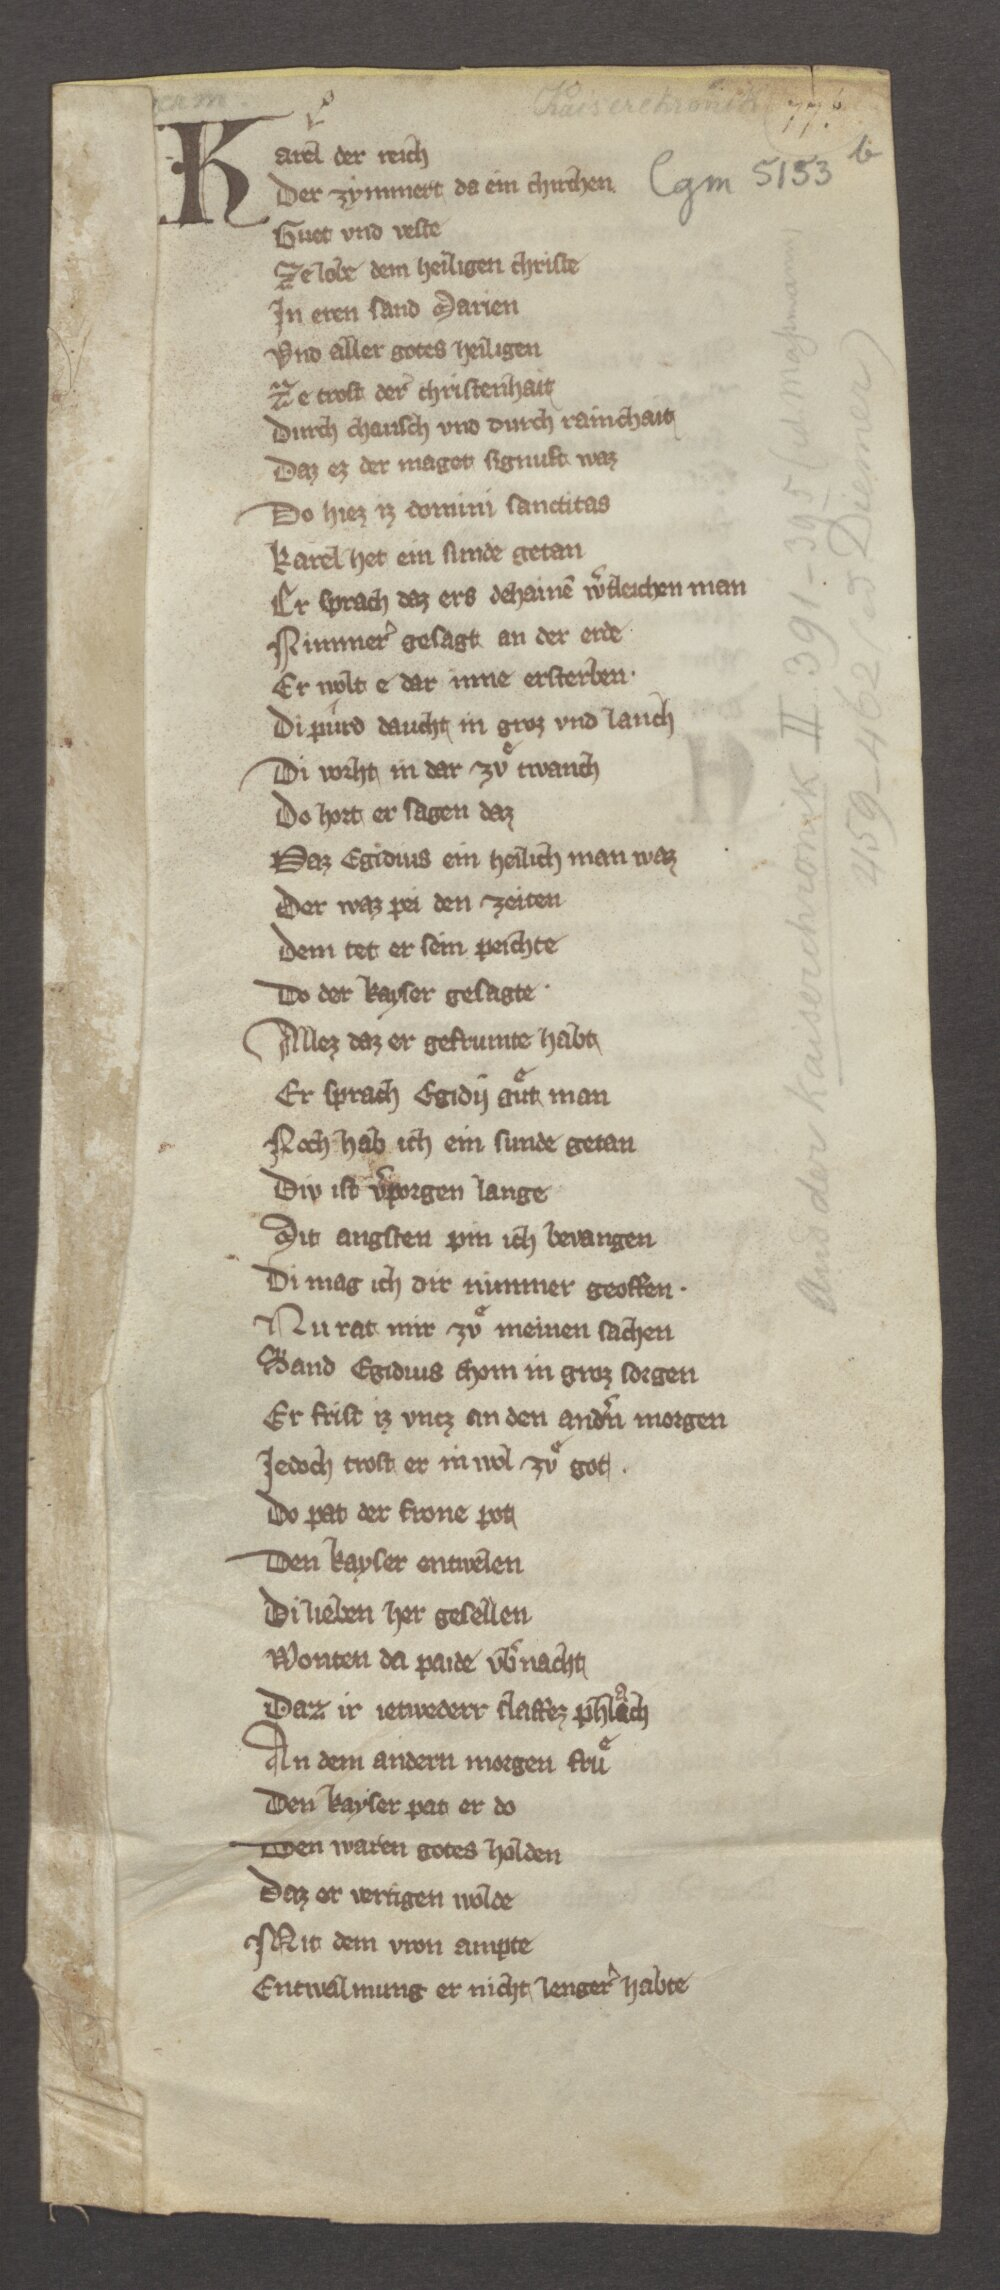 Kaiserchronik
77.
Cgm 5153 b
Karel der reich
Der zymmert da ein chirchen
Guet vnd veste
Ze lobe dem heiligen christe
In eren sand Marien
Vnd aller gotes heiligen
Ze trost der christenhait
Durch chausch vnd durch rainchait
Daz ez der maget signuft waz
Do hiez iz domini sanctitas
Karel het ein sunde getan
Er sprach daz ers dehainē w͛tleichen man
Nimmer gesagt an der erde
Er wolt e dar inne ersterben·
Di purd daucht in groz vnd lanch
Di vorht in dar zvͤ twanch
Do hort er sagen daz
Daz Egidius ein heilich man waz
Der waz pei den zeiten
Dem tet er sein peichte
Do der kayser gesagte·
Allez daz er gefrumte habt
Er sprach Egidij guͤt man
Noch hab ich ein sunde getan
Div ist v͛porgen lange
Mit angsten pin ich bevangen
Di mag ich dir nimmer geoffen·
Nu rat mir zvͤ meinen sachen
Sand Egidius chom in groz sorgen
Er frist iz vntz an den and͛n morgen
Jedoch trost er in wol zvͤ got·
Do pat der frone pot
Den kayser entwelen
Di lieben her gesellen
Wonten da paide vb͛nacht
Daz ir ietwederr slaffez phlach
An dem andern morgen fruͤ
Den kayser pat er do
Den waren gotes holden
Daz er vertigen wolde
Mit dem vron ampte
Entwalmung er nicht lenger habte
Aus der Kaiserchronik II 391-395 (ed Massmann)
459-462, ed Diemer)